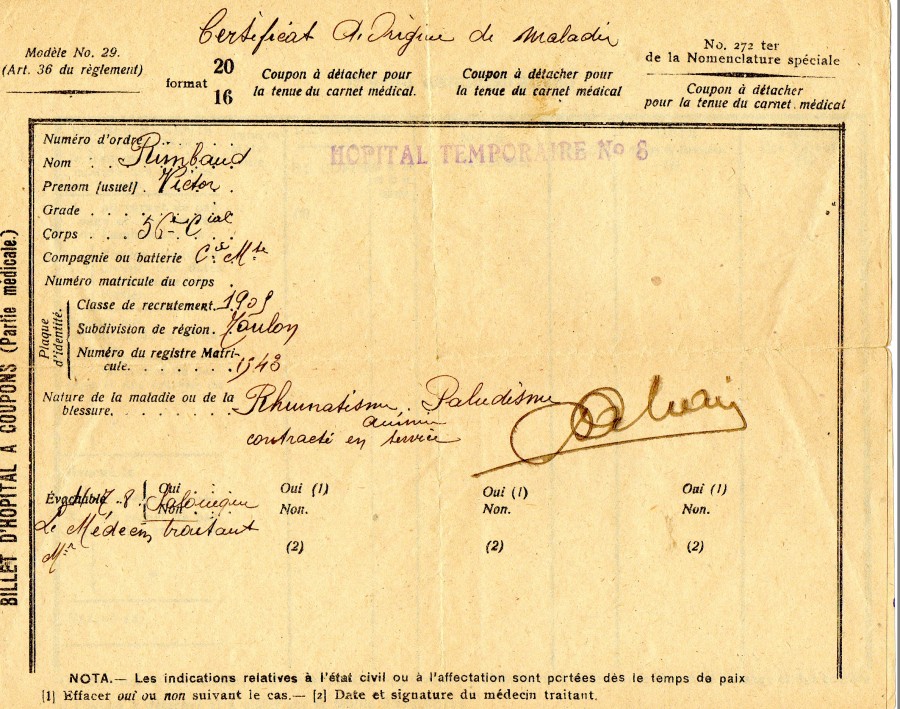 Certificat d'Origine de maladie
Modèle No. 29.
(Art. 36 du règlement)
format 20
16
Coupon à détacher pour
la tenue du carnet médical.
Coupon à détacher pour
la tenue du carnet médical
No. 272 ter
de la Nomenclature spéciale
Coupon à détacher
pour la tenue du carnet. médical
BILLET D'HOPITAL A COUPONS (Partie médicale.)
HOPITAL TEMPORAIRE No 8
Numéro d'ordre
Nom . . Rimbaud
Prenom [usuel] . Victor
Grade
Corps . . . 56e Cial
Compagnie ou batterie Cie Mse
Numéro matricule du corps
Plaque
d'identité.
Classe de recrutement. 1905
Subdivision de région. Toulon
Numéro du registre Matri-
cule. 1543
Nature de la maladie ou de la
blessure. Rhumatisme. Paludisme
contracté en service
Évacuable Oui
Non. Salonique
Oui (1)
Non.
Oui (1)
Non.
Oui (1)
Non.
Le Médecin traitant
(2)
(2)
(2)
NOTA.— Les indications relatives à l'état civil ou à l'affectation sont portées dès le temps de paix
[1] Effacer oui ou non suivant le cas.— [2] Date et signature du médecin traitant.